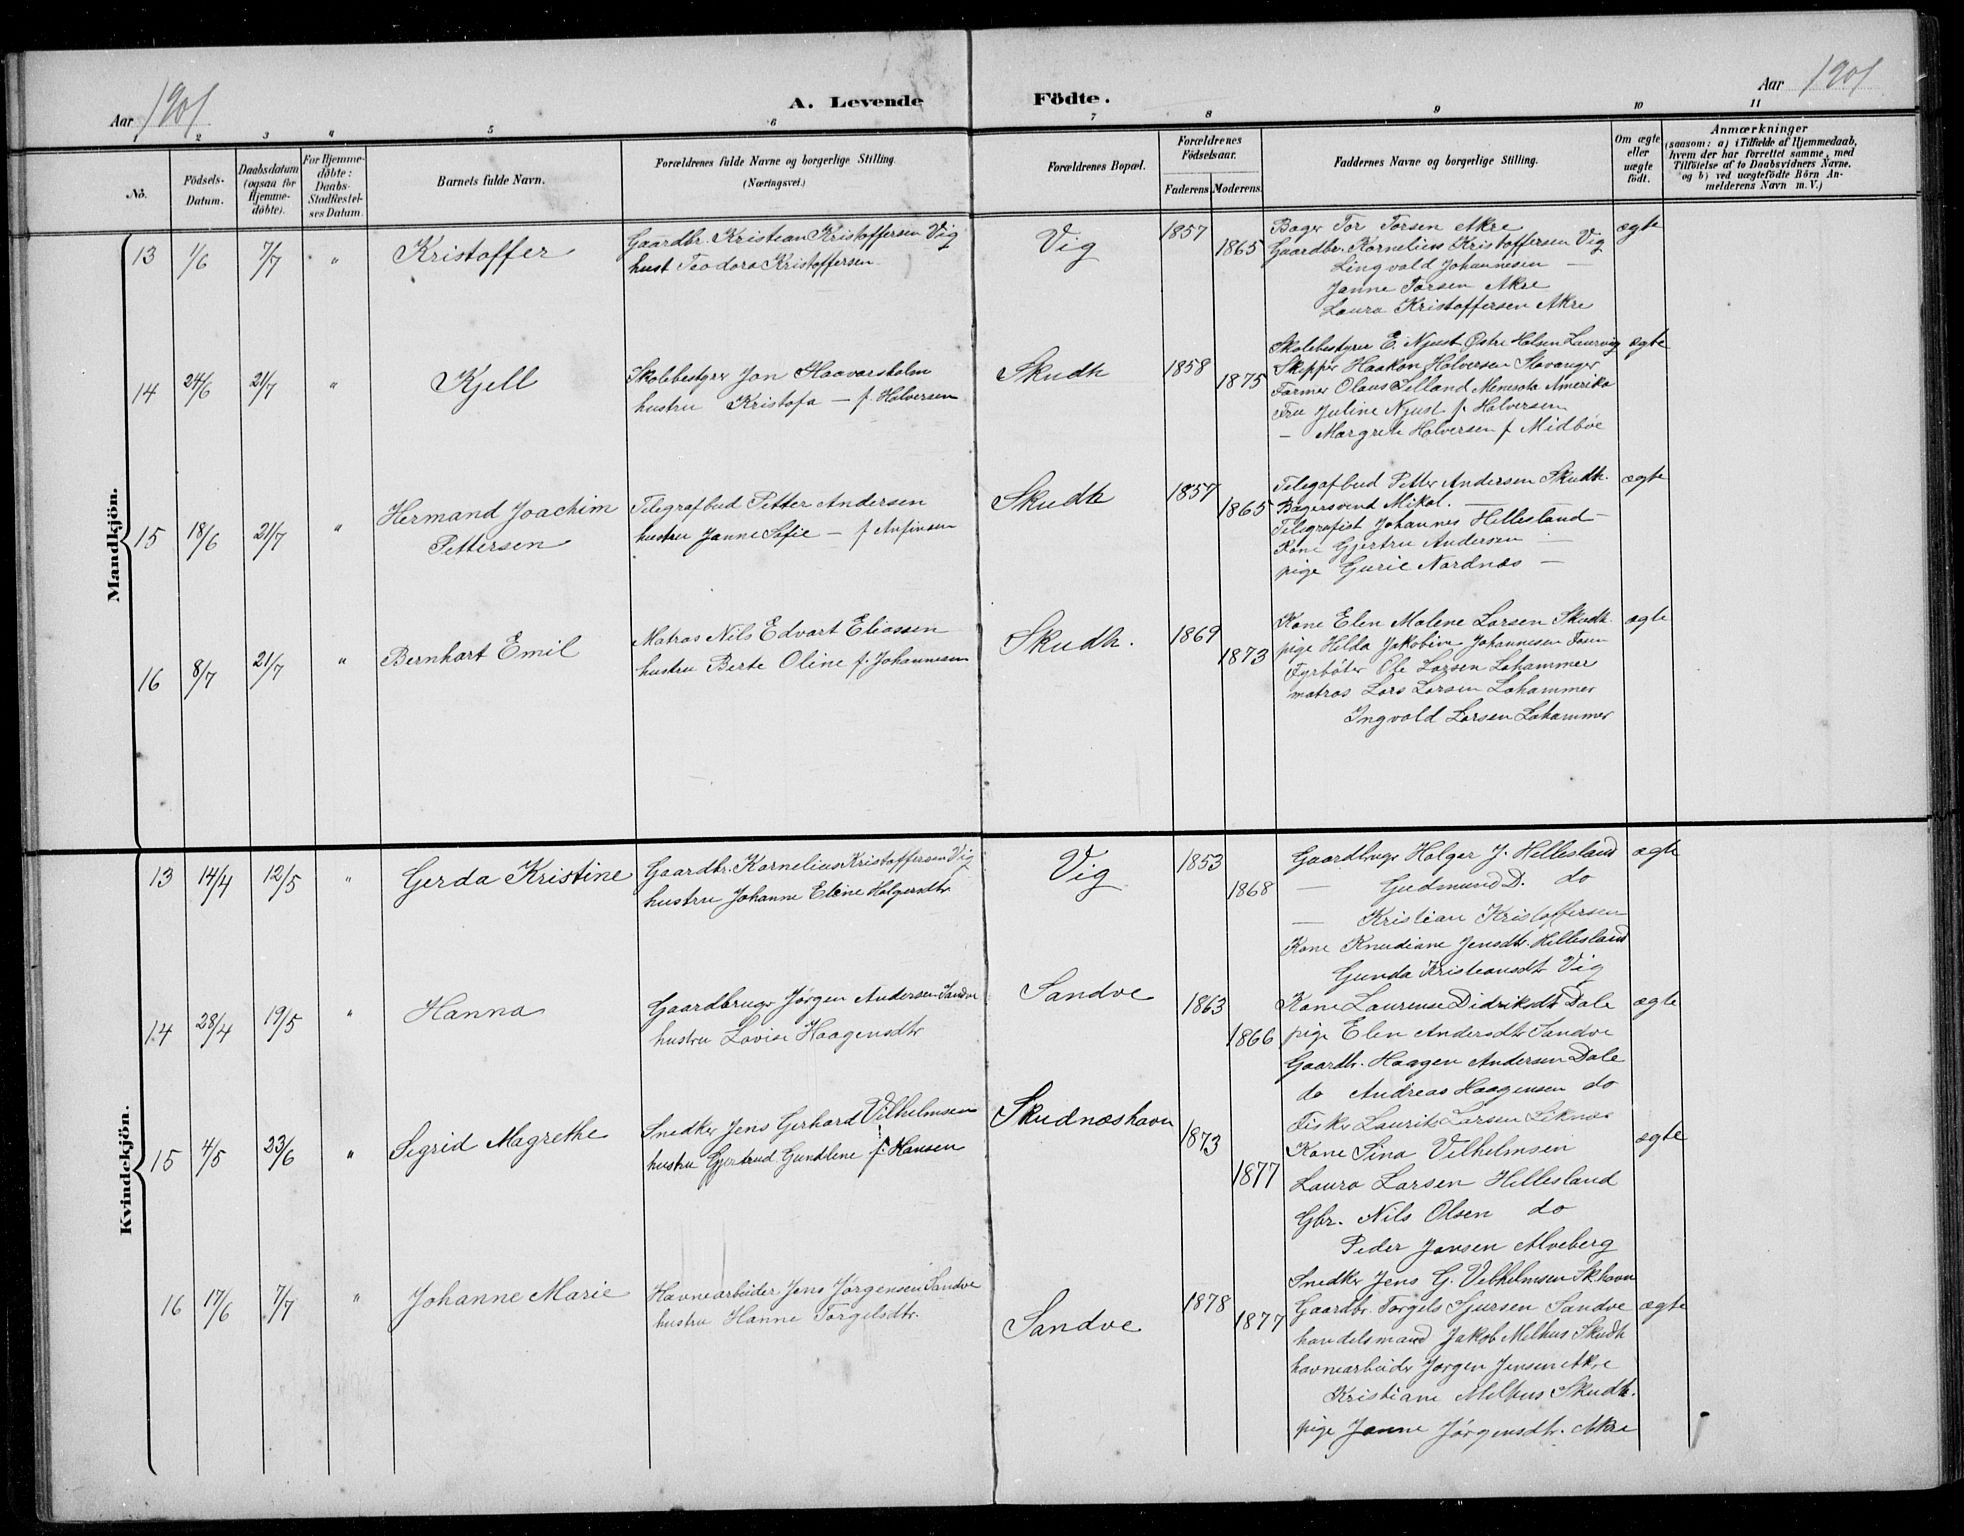 Aar 1901
A. Levende
Födte.
Aar 1901
1 2 3 4 5 6 7 8 9 10 11
No.
Födsels-Datum.
Daabsdatum (ogsaa for Hjemmedöbte).
For Hjemmedöbte: Daabs-Stadfæstelses Datum.
Barnets fulde Navn.
Forældrenes fulde Navne og borgerlige Stilling.
(Næringsvei.)
Forældrenes Bopæl.
Forældrenes Födselsaar.
Faderens. Moderens.
Faddernes Navne og borgerlige Stilling.
Om ægte eller uægte födt.
Anmærkninger
(saasom: a) i Tilfælde af Hjemmedaab, hvem der har forrettet samme, med Tilföielse af to Daabsvidners Navne, og b) ved uægtefödte Börn Anmelderens Navn m. V.)
Mandkjön.
13 1/6 7/7 " Kristoffer
Gaardbr. Kristian Kristoffersen Vig
hust Teodora Kristoffersen
Vig 1857 1865
Bager Tor Torsen Akre
Gaardbr. Kornelius Kristoffersen Vig
Lingvald Johannesen —
Janne Torsen Akre
Laura Kristoffersen Akre
ægte
14 24/6 21/7 " Kjell
Skolebestyrer Jon Haavarsholm
hustru Kristofa — f. Halversen
Skudh 1858 1875
Skolebestyrer E. Njust Østre Holsen Laurvig
Skipper Haakon Halversen Stavanger
Farmer Olaus Lilland Menesota Amerika
Fru Juline Njust f. Halversen
— Margrete Halversen f Midböe
ægte
15 18/6 21/7 " Hermand Joachim
Pettersen
Telegrafbud Petter Andersen
hustru Janne Sofie — f Anfinsen
Skudh 1857 1865
Telegrafbud Petter Andersen Skudh.
Bagersvend Mikal. —
Telegrafist Johannes Hellesland —
Kone Gjertru Andersen —
pige Gurie Nordnæs —
ægte
16 8/7 21/7 " Bernhart Emil
Matros Nils Edvart Eliassen
hustru Berte Oline f. Johannesen
Skudh. 1869 1873
Kone Elen Malene Larsen Skudh.
pige Hilda Jakobine Johannesen
Fyrböter Ole Larsen Lahammer
matros Lars Larsen Lahammer
Ingvald Larsen Lahammer
ægte
Kvindekjön.
13 14/4 12/5 " Gerda Kristine
Gaardbr. Kornelius Kristoffersen Vig
hustru Johanne Elene Holgersdtr
Vig 1853 1868
Gaardbrugr Holger J. Hellesland
— Gudmund D. do
— Kristian Kristoffersen
Kone Knudiane Jensdtr. Hellesland
Gunda Kristiansdtr Vig
ægte
14 28/4 19/5 " Hanna
Gaardbruger Jørgen Andersen Sandve
hustru Lovise Haagensdtr
Sandve 1863 1866
Kone Laurense Didriksdtr Dale
pige Elen Andersdtr Sandve
Gaardbr. Haagen Andersen Dale
do Andreas Haagensen do
Fisker Laurits Larsen Liknæs
ægte
15 4/5 23/6 " Sigrid Magrethe
Snedker Jens Gerhard Vilhelmsen
hustru Gjertrud Gundlene f. Hansen
Skudnæshavn 1873 1877
Kone Sina Vilhelmsen
Laura Larsen Hellesland
Gbr. Nils Olsen do
Peder Jansen Alveberg
Snedker Jens G. Vilhelmsen Skhavn
ægte
16 17/6 7/7 " Johanne Marie
Havnearbeider Jens Jørgensen Sandve
hustru Hanne Torgelsdtr.
Sandve 1878 1877
Gaardbr. Torgels Sjursen Sandve
handelsmand Jakob Melhus Skudh
havnearbeider Jørgen Jensen Akre
Kristiane Melhus Skudh.
pige Janne Jørgensdtr. Akre
ægte